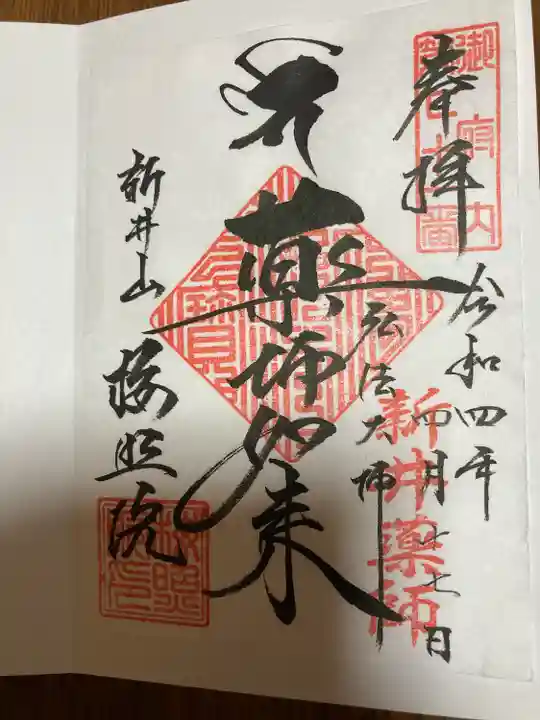 奉拝
令和四年
四月十七日
新井薬師
弘法大師
薬師如来
新井山
梅照院